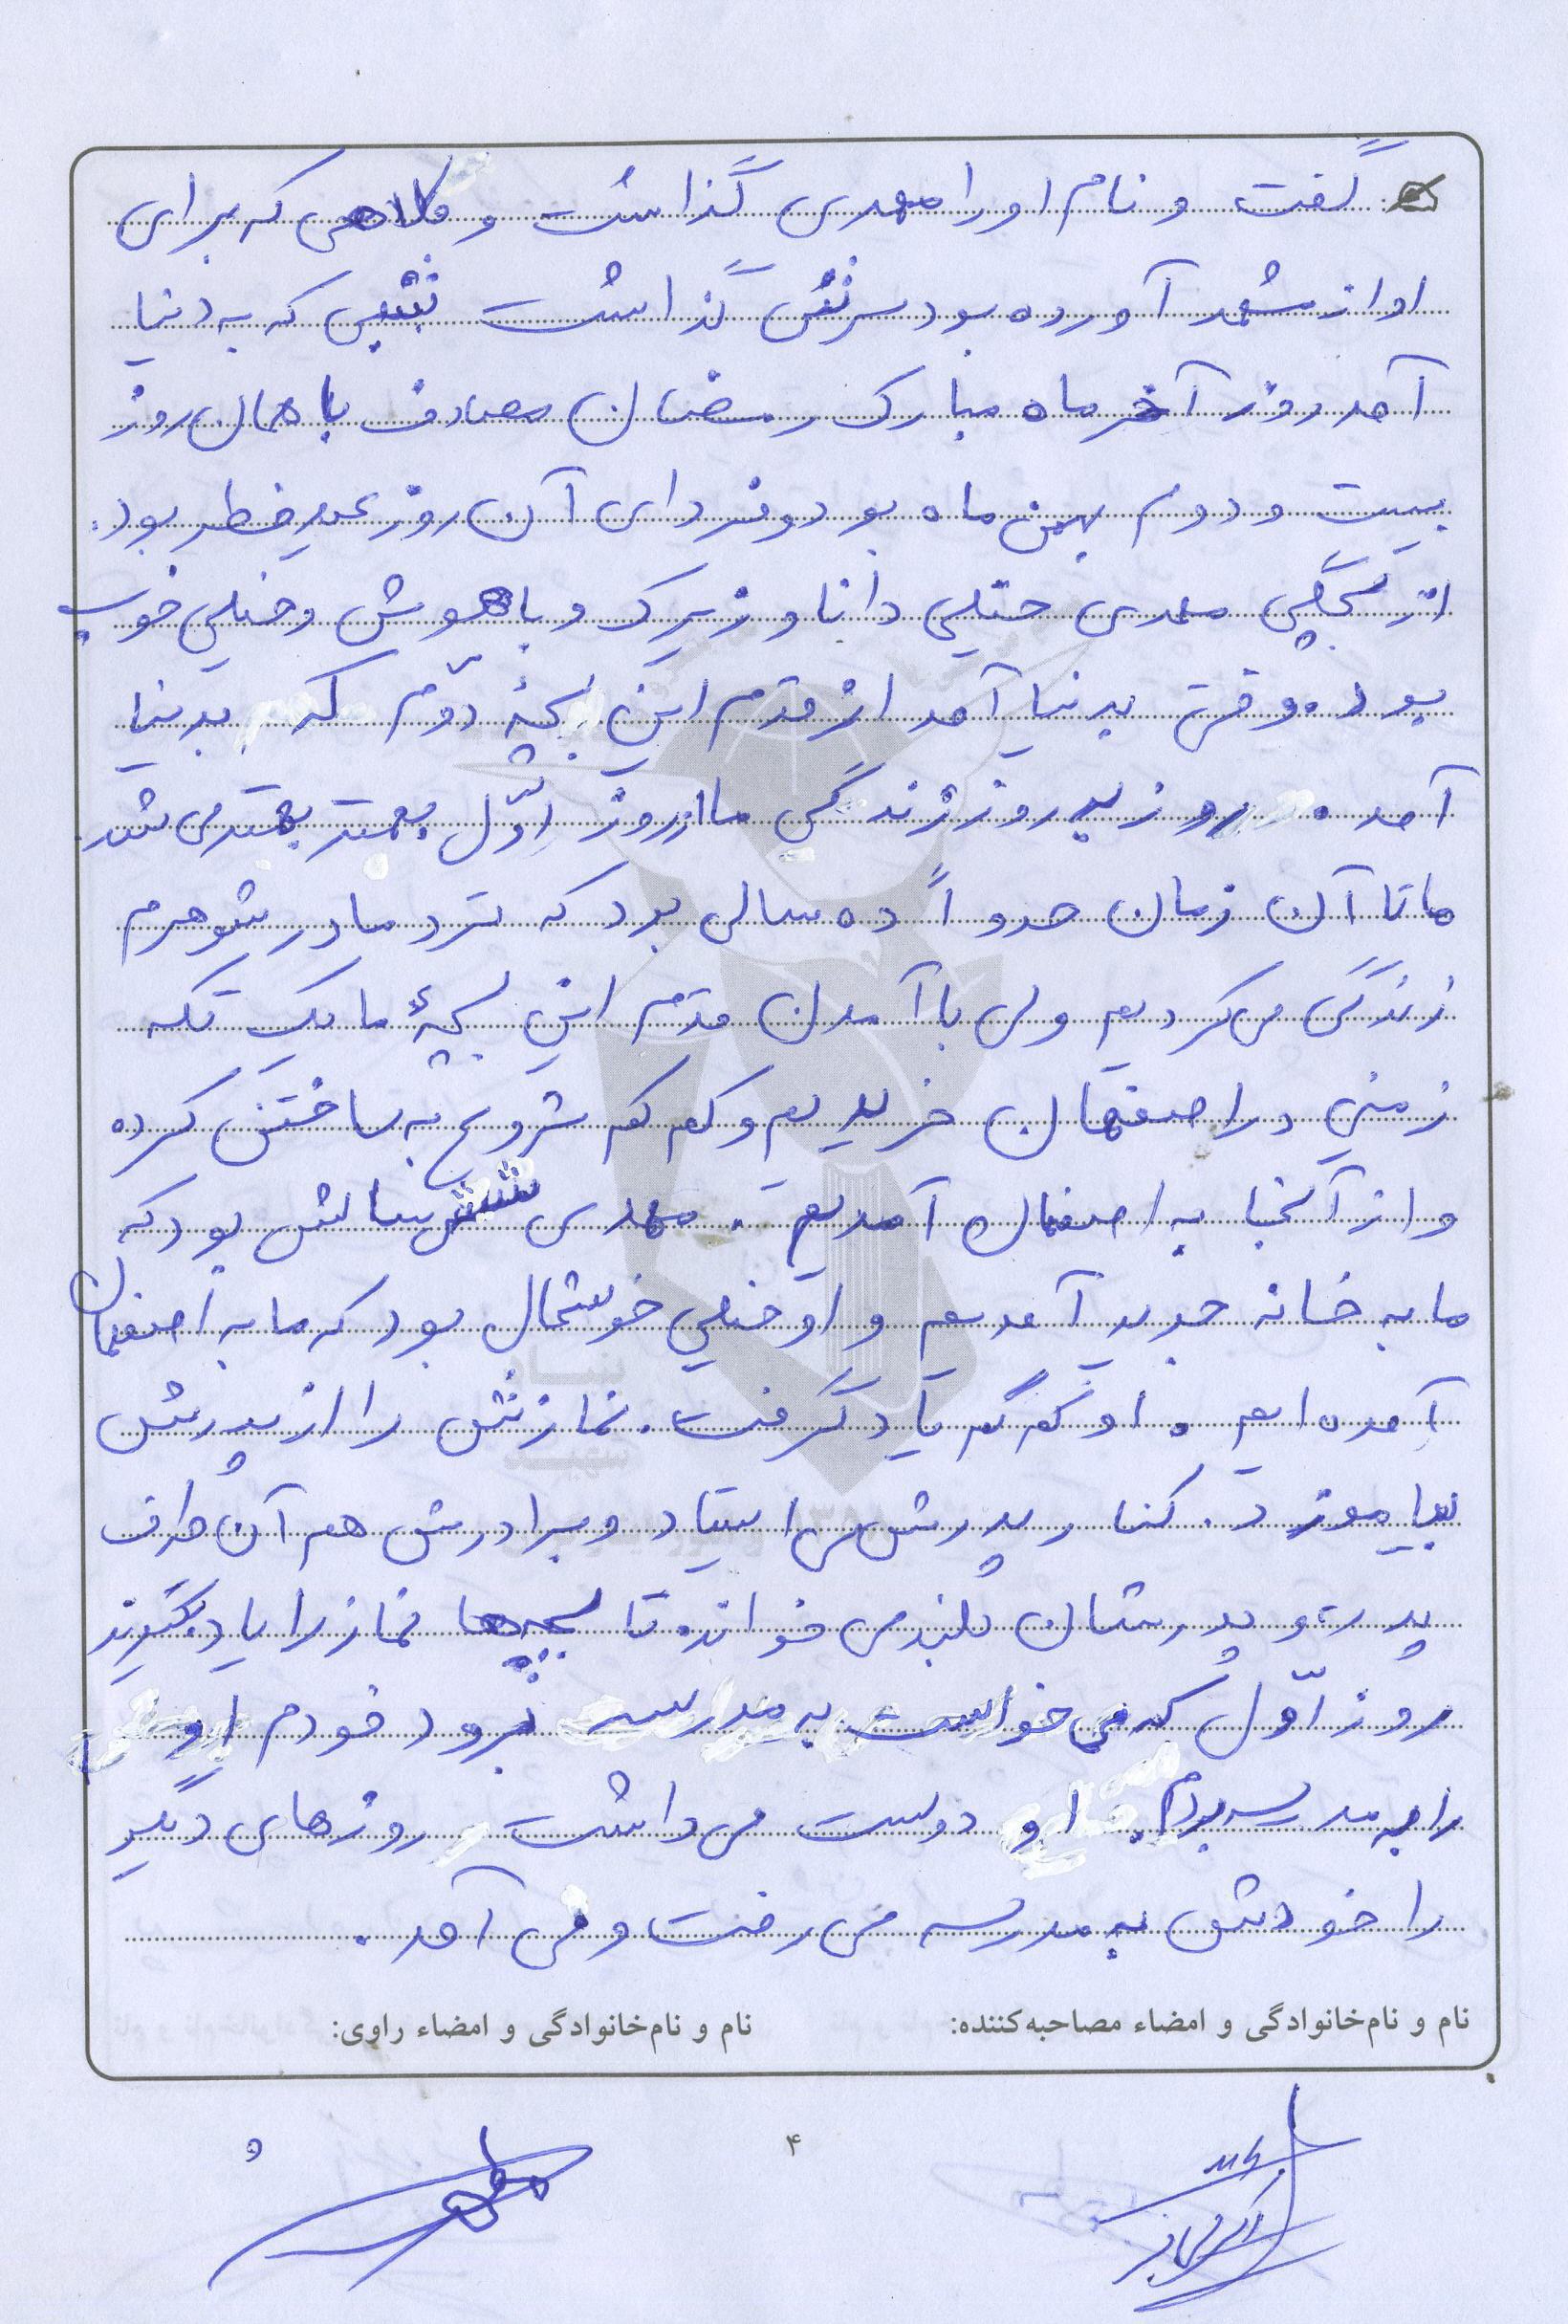 گفت و نام او را مهدی گذاشت و کلاهی که برای
او از مشهد آورده بود سرش گذاشت شبی که به دنیا
آمد روز آخر ماه مبارک رمضان مصادف با همان روز
بیست و دوم بهمن ماه بود و فردای آن روز عید فطر بود.
از بچگی مهدی خیلی دانا و زیرک و باهوش و خیلی خوب
بود. وقتی بدنیا آمد از قدم این بچهٔ دوّم که بدنیا
آمد. روز به روز زندگی ما از روز اوّل بهتر بهتر می شد.
ما تا آن زمان حدوداً ده سالی بود که نزد مادر شوهرم
زندگی می کردیم ولی با آمدن قدم این بچهٔ ما یک تکه
زمینی در اصفهان خریدیم و کم کم شروع به ساختن کرده
و از آنجا به اصفهان آمدیم. مهدی شش سالش بود که
ما به خانه جدید آمدیم و او خیلی خوشحال بود که ما به اصفهان
آمده ایم. او کم کم یاد گرفت. نمازش را از پدرش
بیاموزد. کنار پدرش می ایستاد و برادرش هم آن طرف
پدرش و پدرشان بلند می خواند تا بچه ها نماز را یاد بگیرند
روز اوّل که می خواست به مدرسه برود خودم او
را به مدرسه بردم. او دوست می داشت روزهای دیگر
را خودش به مدرسه می رفت و می آمد.
نام و نام‌خانوادگی و امضاء مصاحبه‌کننده:
نام و نام‌خانوادگی و امضاء راوی:
۴